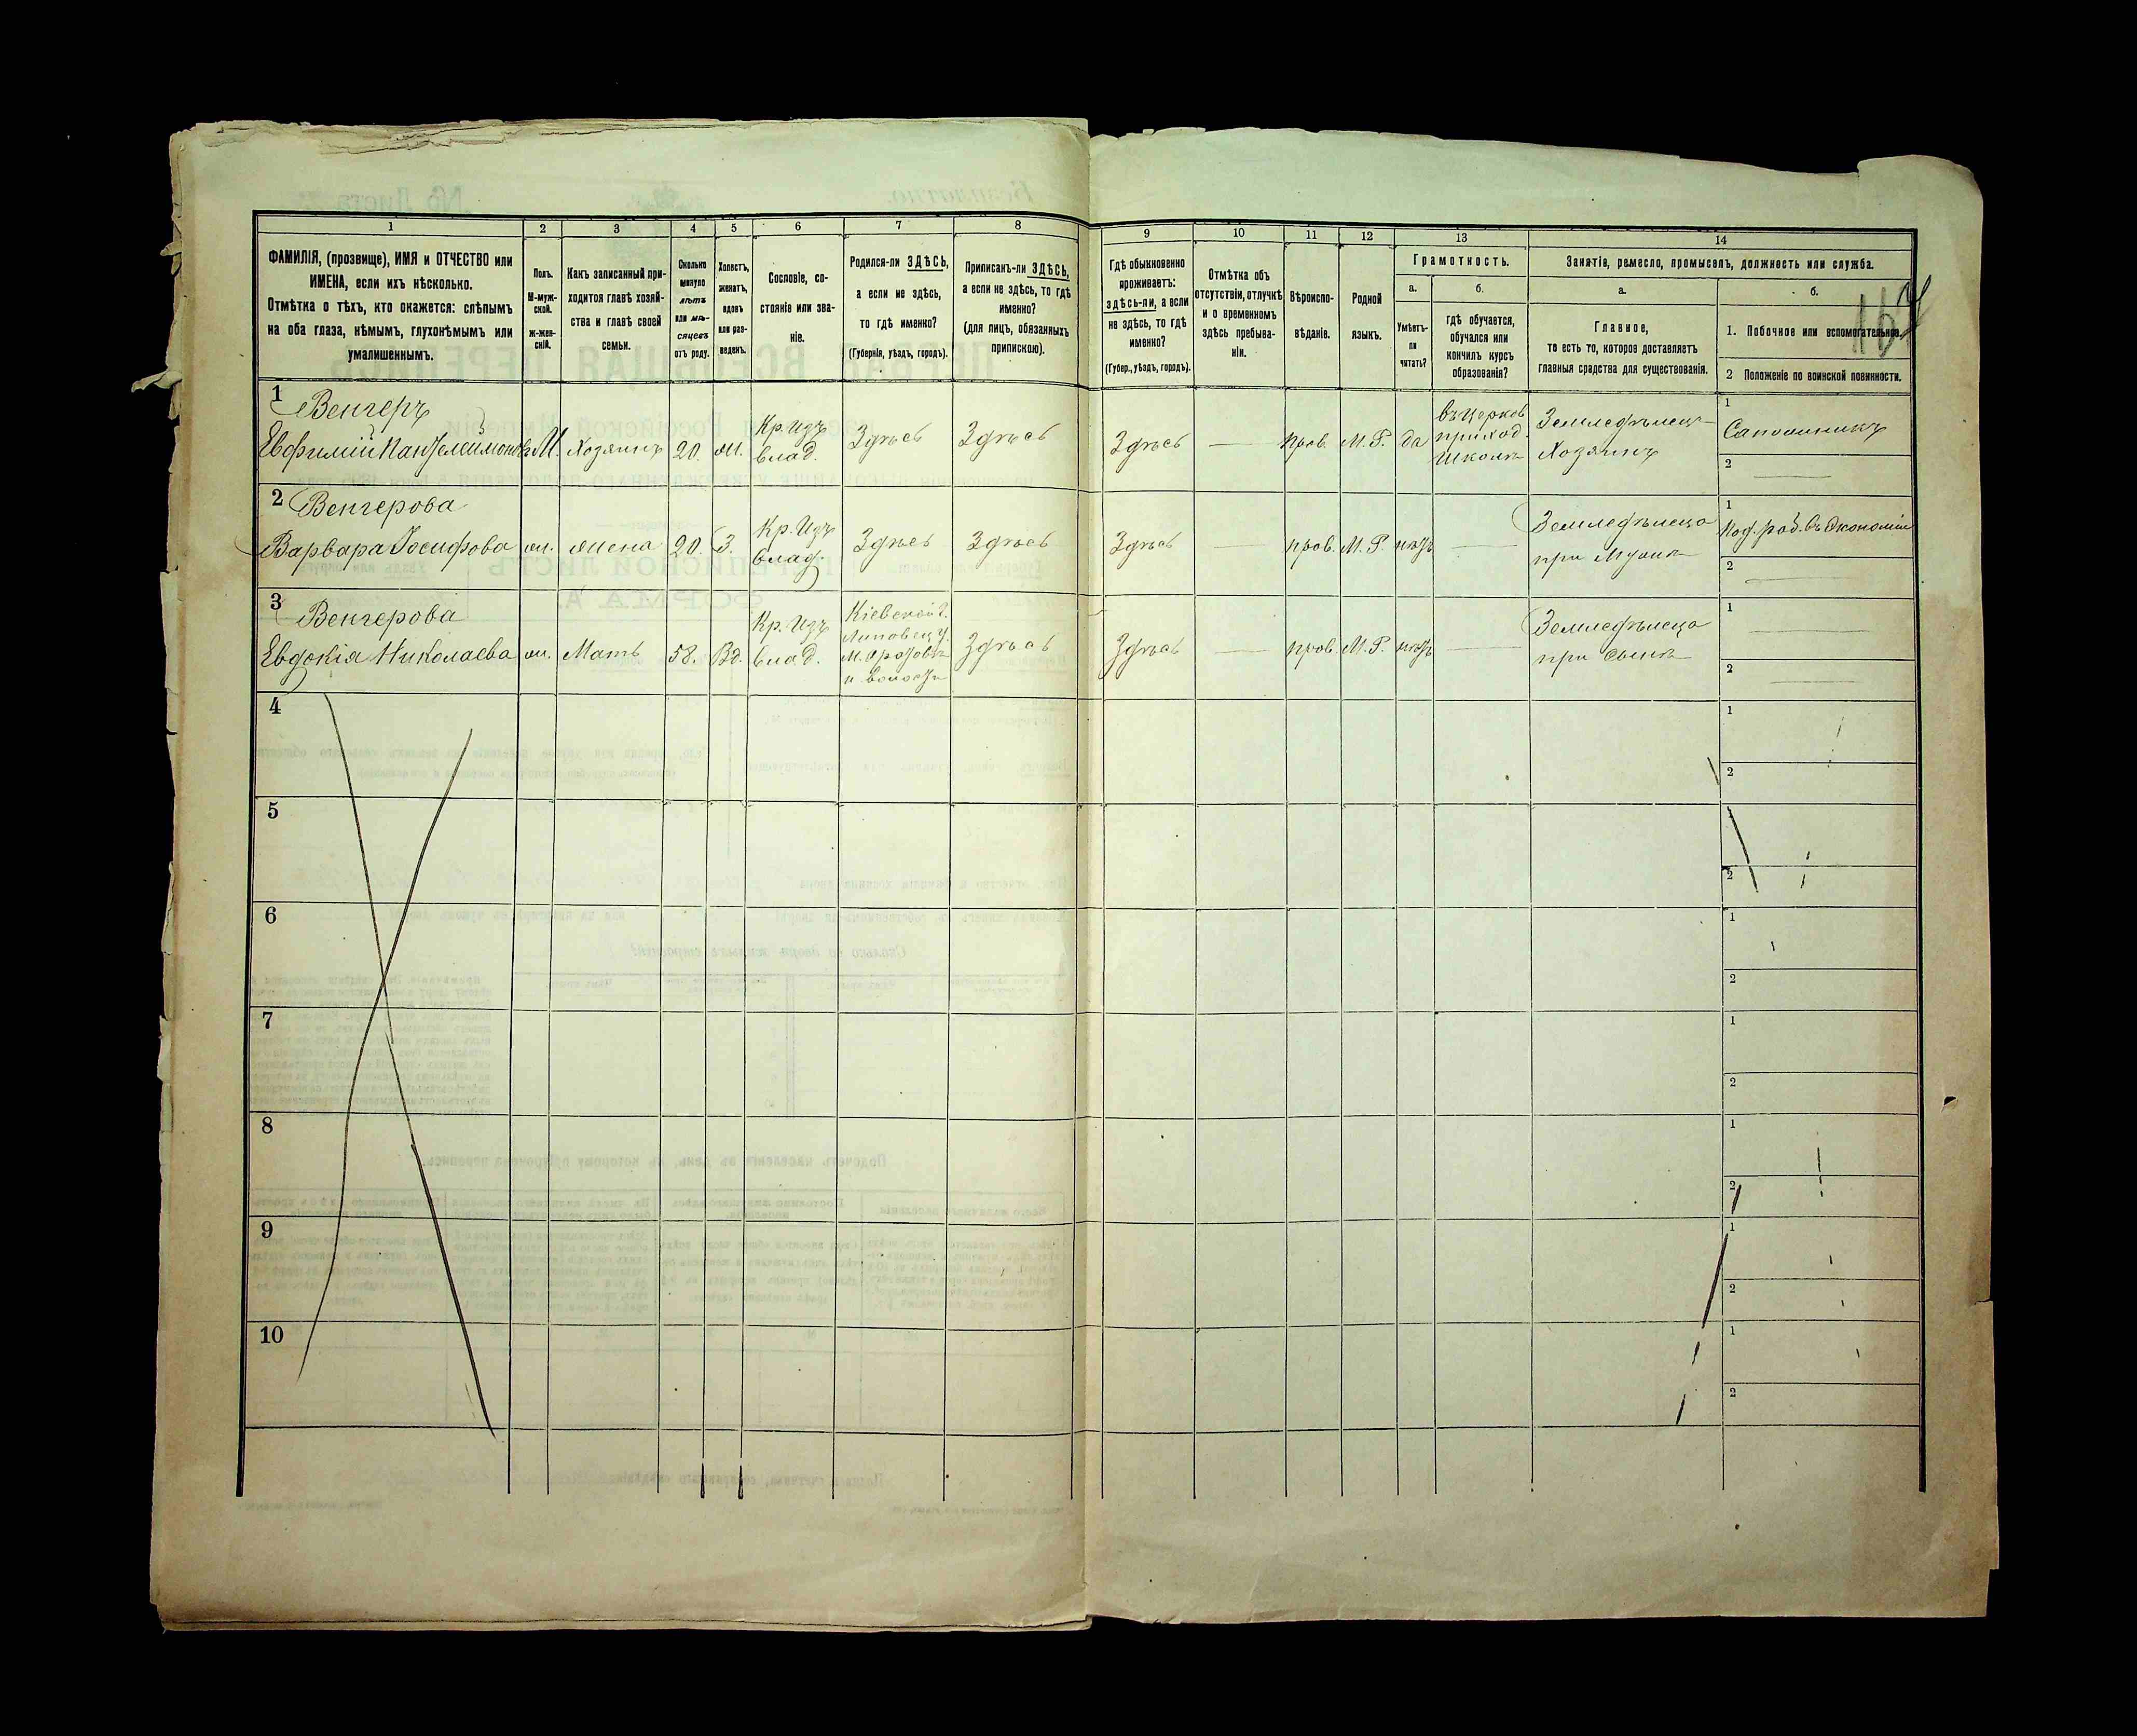 1 2 3 4 5 6 7 8 9 10 11 12 13 14
ФАМИЛІЯ, (прозвище), ИМЯ и ОТЧЕСТВО или
ИМЕНА, если ихъ нѣсколько.
Отмѣтка о тѣхъ, кто окажется: слѣпымъ
на оба глаза, нѣмымъ, глухонѣмымъ или
умалишеннымъ.
Полъ.
М-муж-
ской.
Ж-жен-
скій.
Какъ записанный при-
ходится главѣ хозяй-
ства и главѣ своей
семьи.
Сколько
минуло
лѣтъ
или мѣ-
сяцевъ
отъ роду.
Холостъ,
женатъ,
вдовъ
или раз-
веденъ.
Сословіе, со-
стояніе или зва-
ніе.
Родился-ли ЗДѢСЬ,
а если не здѣсь,
то гдѣ именно?
(Губернія, уѣздъ, городъ).
Приписанъ-ли ЗДѢСЬ,
а если не здѣсь, то гдѣ
именно?
(для лицъ, обязанныхъ
припискою).
Гдѣ обыкновенно
проживаетъ:
здѣсь-ли, а если
не здѣсь, то гдѣ
именно?
(Губер., уѣздъ, городъ).
Отмѣтка объ
отсутствіи, отлучкѣ
и о временномъ
здѣсь пребыва-
ніи.
Вѣроиспо-
вѣданіе.
Родной
языкъ.
Грамотность.
а.
Умѣетъ-
ли
читать?
б.
гдѣ обучается,
обучался или
кончилъ курсъ
образованія?
Занятіе, ремесло, промыселъ, должность или служба.
а.
Главное,
то есть то, которое доставляетъ
главныя средства для существованія.
б.
1. Побочное или вспомогательное.
2 Положеніе по воинской повинности.
1
Венгеръ
Евфимій Пантелеймоновъ М. Хозяинъ 20. ж.
Кр. Изъ
влад.
Здѣсь Здѣсь Здѣсь — прав. М. Р. да
въ церков
приход.
школѣ
Земледѣлецъ
Хозяинъ
1
Сапожникъ
2 —
2
Венгерова
Варвара Іосифова ж. жена 20. З.
Кр. Изъ
влад
Здѣсь Здѣсь Здѣсь — прав. М. Р. нѣтъ —
Земледѣлецъ
при Мужѣ
1
Под. раб. въ Экономіи
2 —
3
Венгерова
Евдокія Николаева ж. Мать 58. Вд.
Кр. Изъ
влад.
Кіевской г.
Липовец у.
и волости
Здѣсь Здѣсь — прав. М. Р. нѣтъ
Земледѣлецъ
при Сынѣ
1 —
2 —
4 1
2
5 1
2
6 1
2
7 1
2
8 1
2
9 1
2
10 1
2